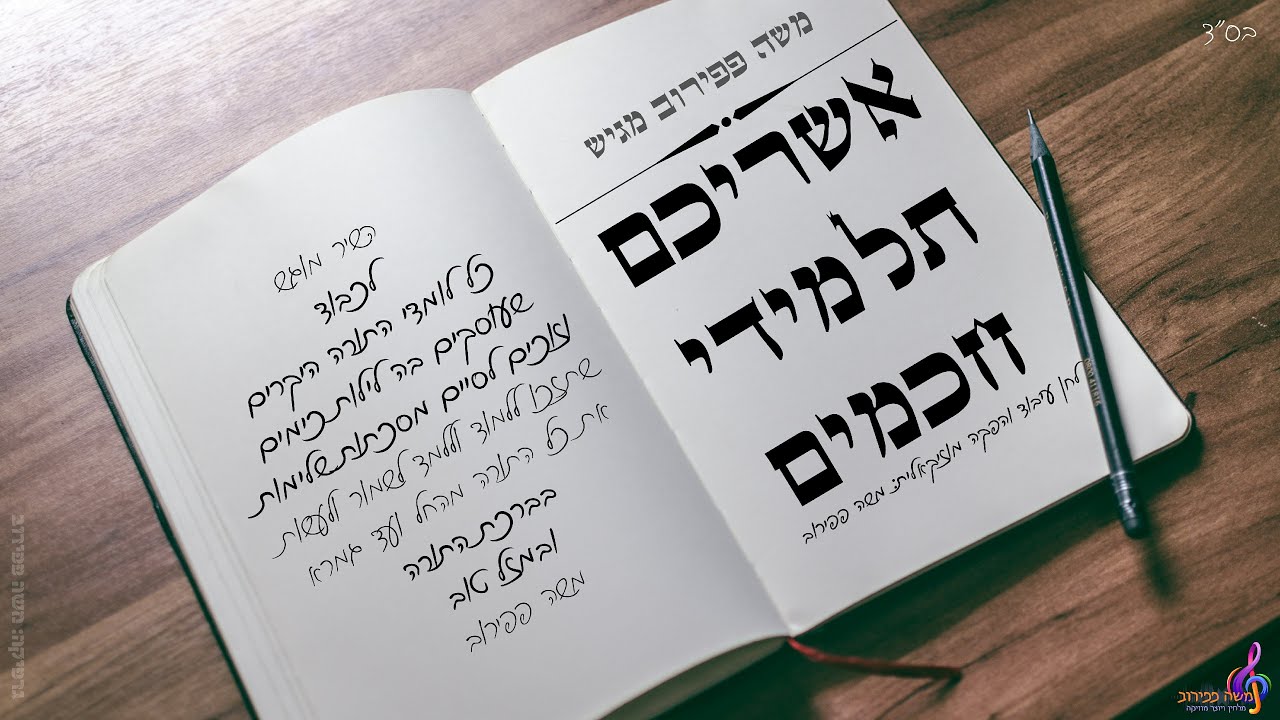 בס"ד
משה פפירוב מגיש
אשריכם
תלמידי
חכמים
לחן עיבוד והפקה מוזיקאלית: משה פפירוב
השיר מוגש
לכבוד
כל לומדי התורה היקרים
שעוסקים בה לילות כימים
וזוכים לסיים מסכתות שלימות
שתזכו ללמוד וללמד לשמור ולעשות
את כל התורה מהחל ועד גמרא
בברכת התורה
ובמזל טוב
משה פפירוב
גרפיקה: משה פפירוב
משה פפירוב
מלחין ויוצר מוזיקה